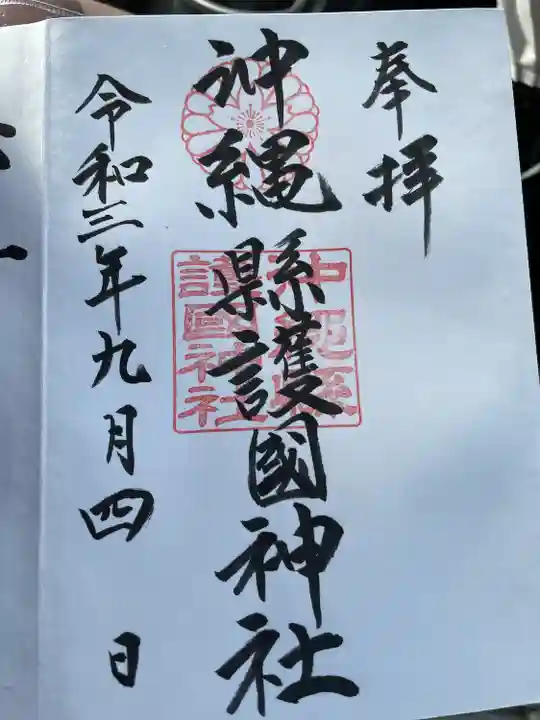 奉拝
沖縄縣護國神社
沖縄縣
護國神社
令和三年九月四日